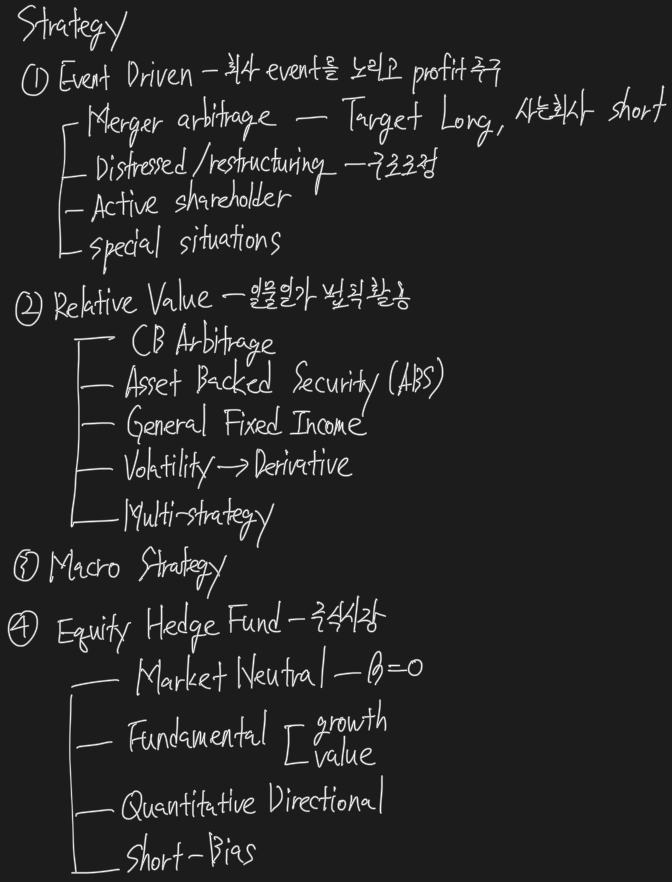 Strategy
① Event Driven - 회사 event를 노리고 profit추구
Merger arbitrage - Target Long, 사는회사 short
Distressed/restructuring - 구조조정
Active shareholder
special situations
② Relative Value - 일물일가 법칙 활용
CB Arbitrage
Asset Backed Security (ABS)
General Fixed Income
Volatility → Derivative
Multi-strategy
③ Macro Strategy
④ Equity Hedge Fund - 주식시장
Market Neutral - β=0
Fundamental [ growth
value
Quantitative Directional
Short-Bias